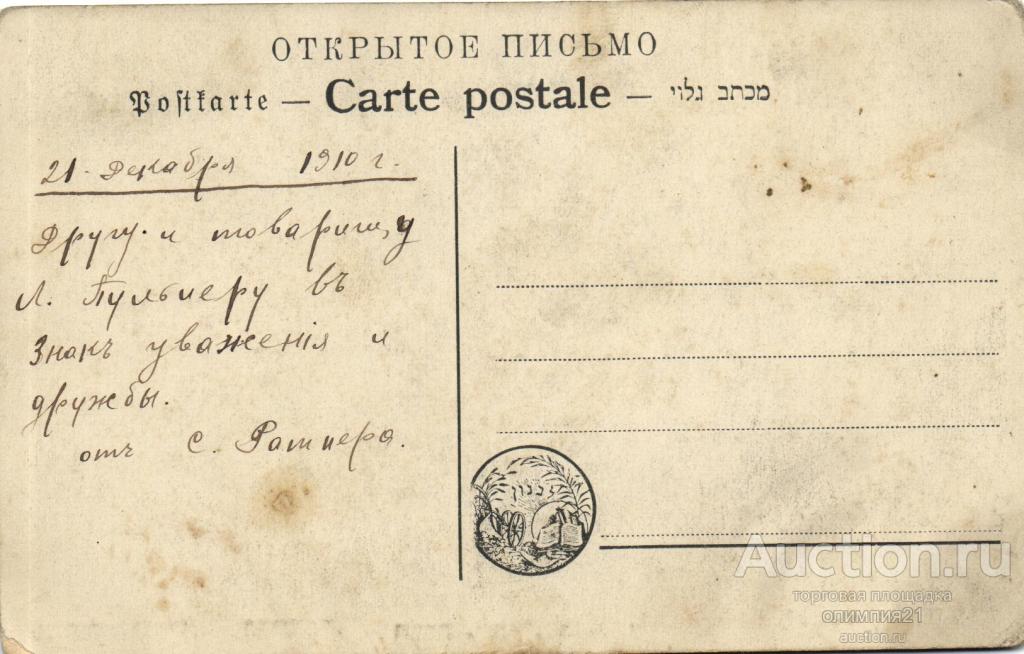 ОТКРЫТОЕ ПИСЬМО
Postkarte — Carte postale — מכתב גלוי
21. Декабря 1910 г.
Другу и товарищу
Л. Пульнеру въ
Знакъ уваженія и
дружбы.
отъ С. Ратнера.
לבנון
Auction.ru
торговая площадка
олимпия21
auction.ru